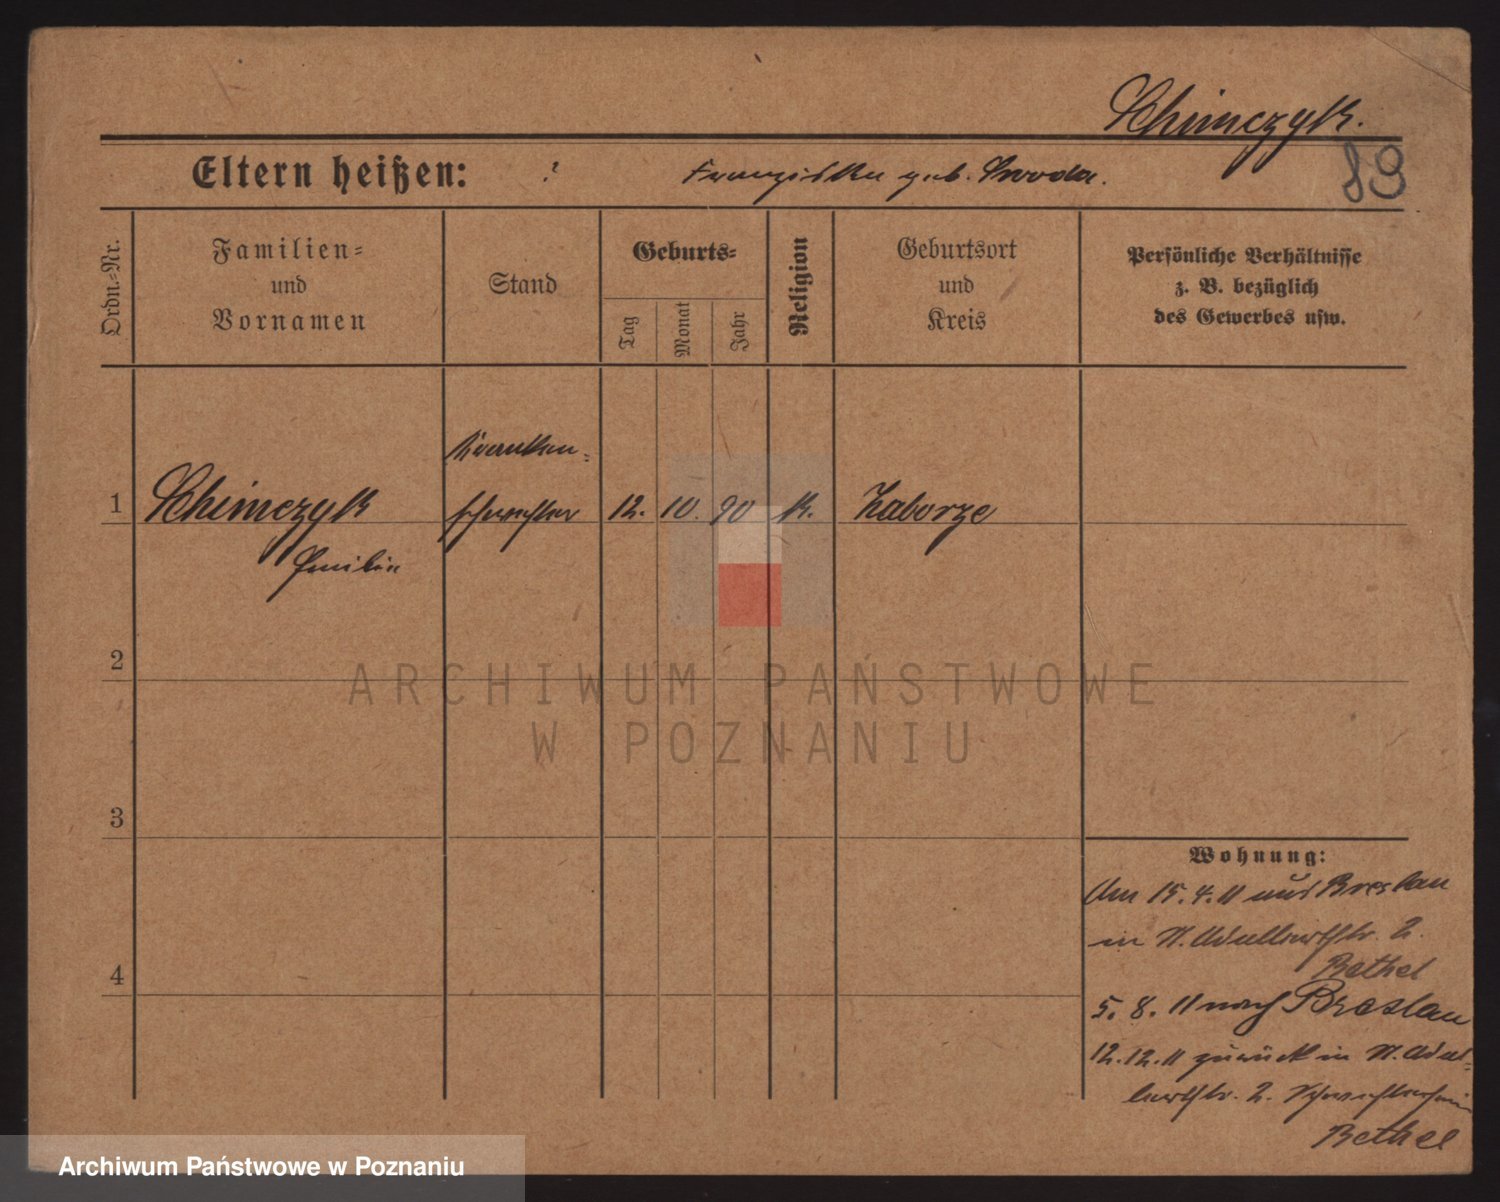 Chimczyk.
89
Eltern heißen: ? Franziska geb. Swoda.
Ordn.-Nr.
Familien-
und
Vornamen
Stand
Geburts-
Tag
Monat
Jahr
Religion
Geburtsort
und
Kreis
Persönliche Verhältnisse
z. B. bezüglich
des Gewerbes usw.
Kranken-
1 Chimczyk schwester 12. 10. 90 k. Zaborze
Emilie
2
ARCHIWUM PAŃSTWOWE
W POZNANIU
3
Wohnung:
Am 15.4.11 aus Breslau
in N. Adalbertstr. 2.
Bethel
4
5. 8. 11 nach Breslau
12.12.11 zurück in N. Adal-
bertstr. 2. Schwesternheim
Bethel
Archiwum Państwowe w Poznaniu